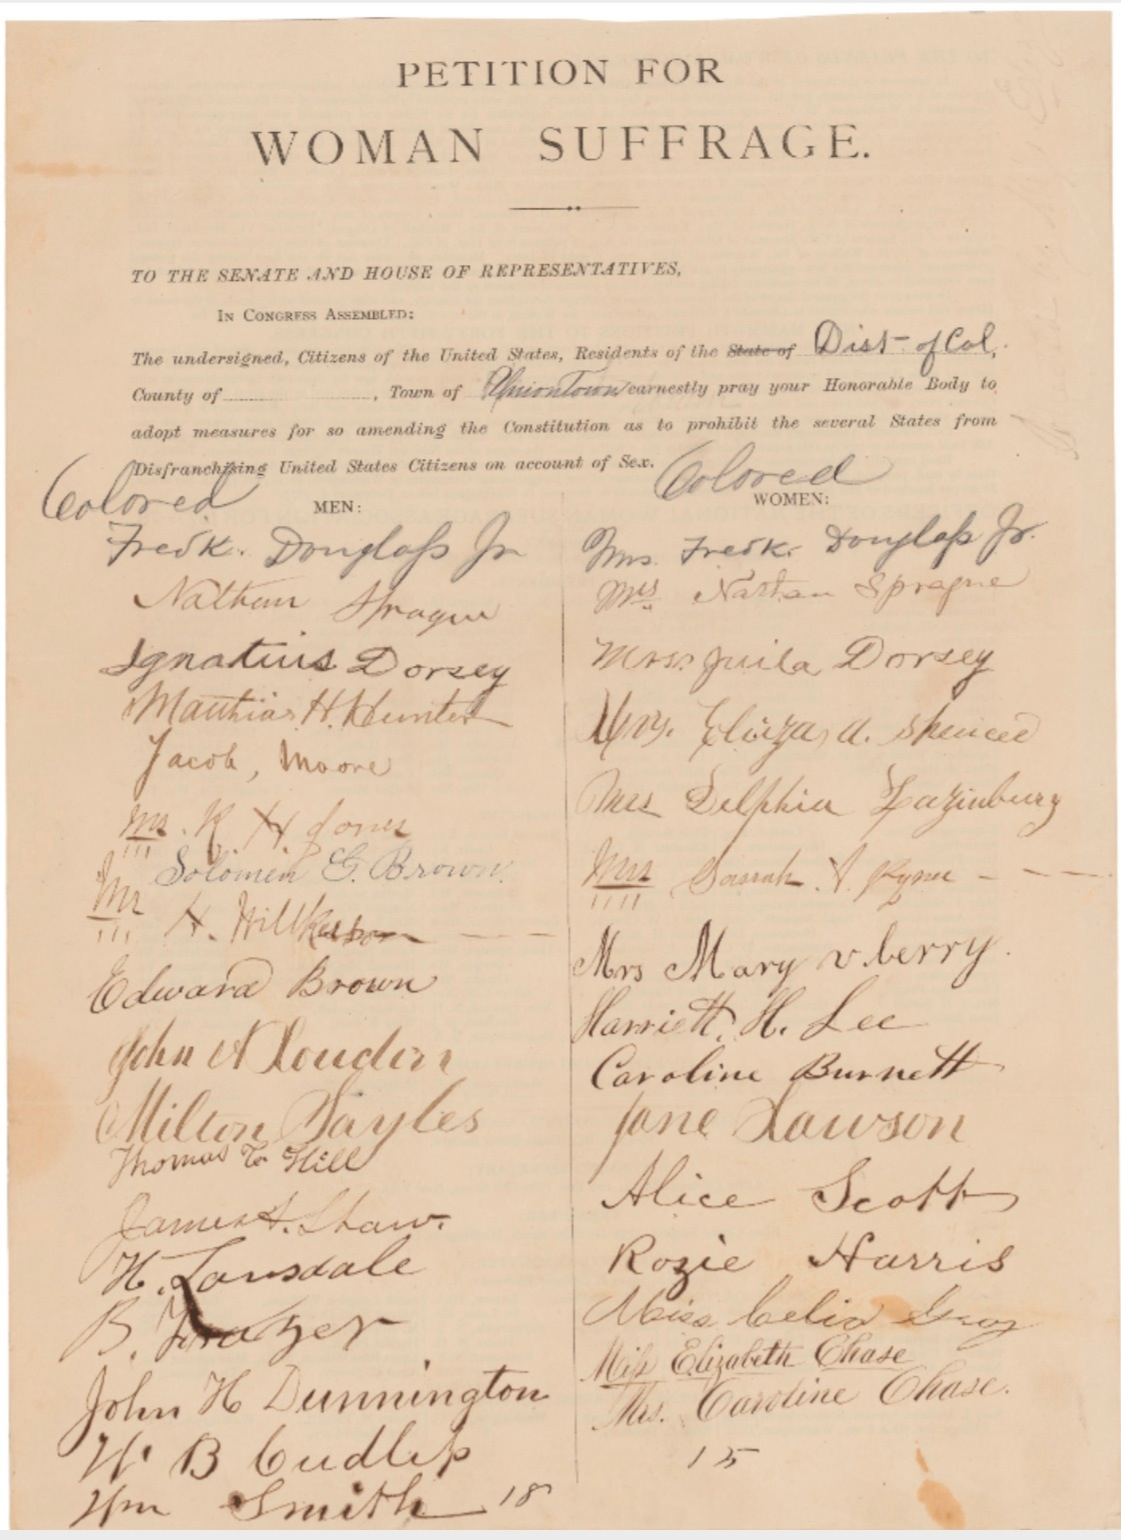 PETITION FOR
WOMAN SUFFRAGE.
TO THE SENATE AND HOUSE OF REPRESENTATIVES,
IN CONGRESS ASSEMBLED:
The undersigned, Citizens of the United States, Residents of the State of Dist of Col,
County of , Town of Uniontown earnestly pray your Honorable Body to
adopt measures for so amending the Constitution as to prohibit the several States from
Disfranchising United States Citizens on account of Sex.
Colored MEN:
Fredk. Douglass Jr
Nathan Sprague
Ignatius Dorsey
Matthias H. Hunter
Jacob, Moore
Mr. R. H. Jones
Solomon G. Brown.
Mr H. Willkerson
Edward Brown
John A Loudon
Milton Sayles
Thomas Hill
James A. Shaw.
H. Lonsdale
B. Frazer
John H Dunnington
W. B Cudlip
Wm Smith 18
Colored WOMEN:
Mrs. Fredk. Douglass Jr.
Mrs Nathan Sprague
Mrs. Juila Dorsey
Mrs. Eliza, A. Spencer
Mrs Delphia
Mrs Sarah J.
Mrs Mary v. berry.
Harriett. H. Lee
Caroline Burnett
Jane Lawson
Alice Scott
Rozie Harris
Miss Celia Gray
Miss Elizabeth Chase
Mrs. Caroline Chase.
15